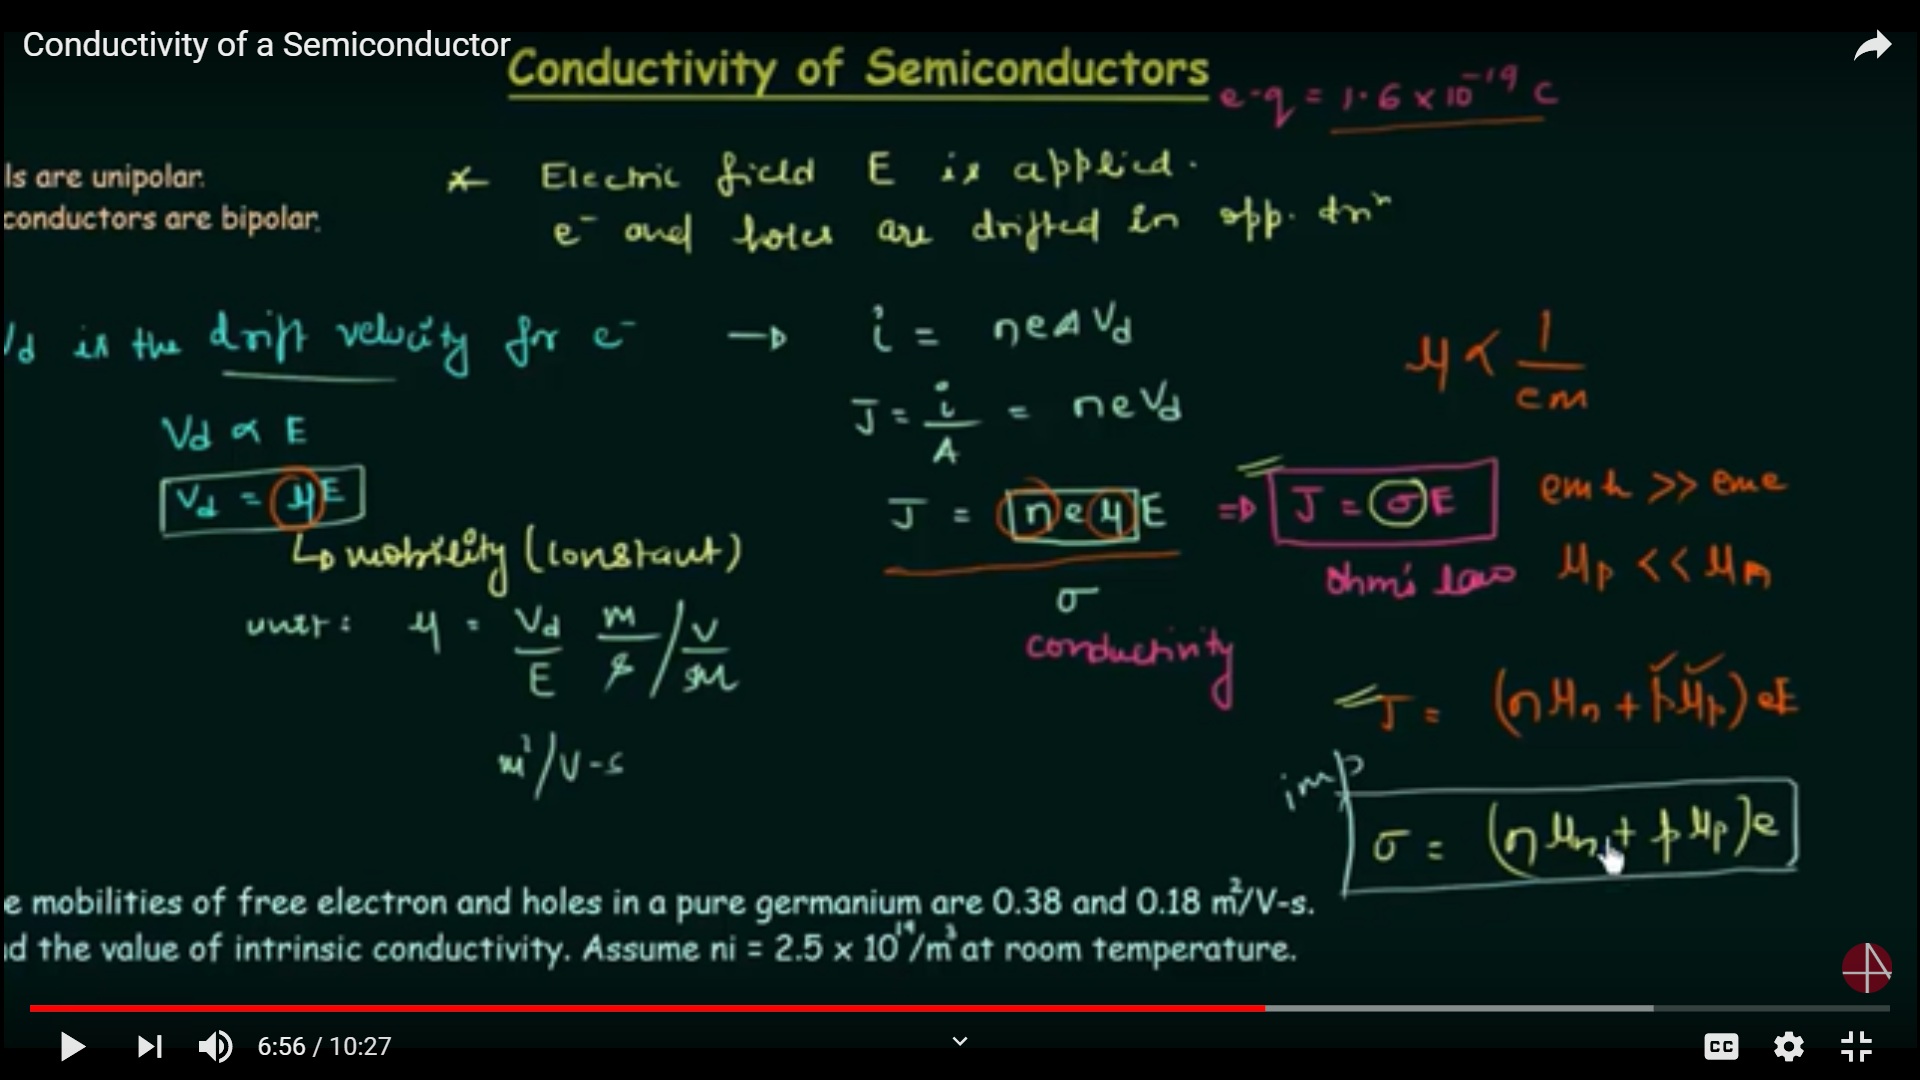 Conductivity of a Semiconductor
Conductivity of Semiconductors
e-q = 1.6 x 10⁻¹⁹ C
ls are unipolar.
conductors are bipolar.
* Electric field E is applied.
e⁻ and holes are drifted in opp. drnⁿ
Vd is the drift velocity for e⁻ → i = neAVd
μ ∝ 1/em
Vd ∝ E
J = i/A = neVd
Vd = μE
J = neμE ⇒ J = σE
emh >> eme
↳ mobility (constant)
σ
ohm's law
μp << μn
unit: μ = Vd/E m/s / V/m
conductivity
J = (nμn + pμp)eE
m²/V-s
imp
σ = (nμn + pμp)e
e mobilities of free electron and holes in a pure germanium are 0.38 and 0.18 m²/V-s.
d the value of intrinsic conductivity. Assume ni = 2.5 x 10¹⁹/m³ at room temperature.
6:56 / 10:27
CC